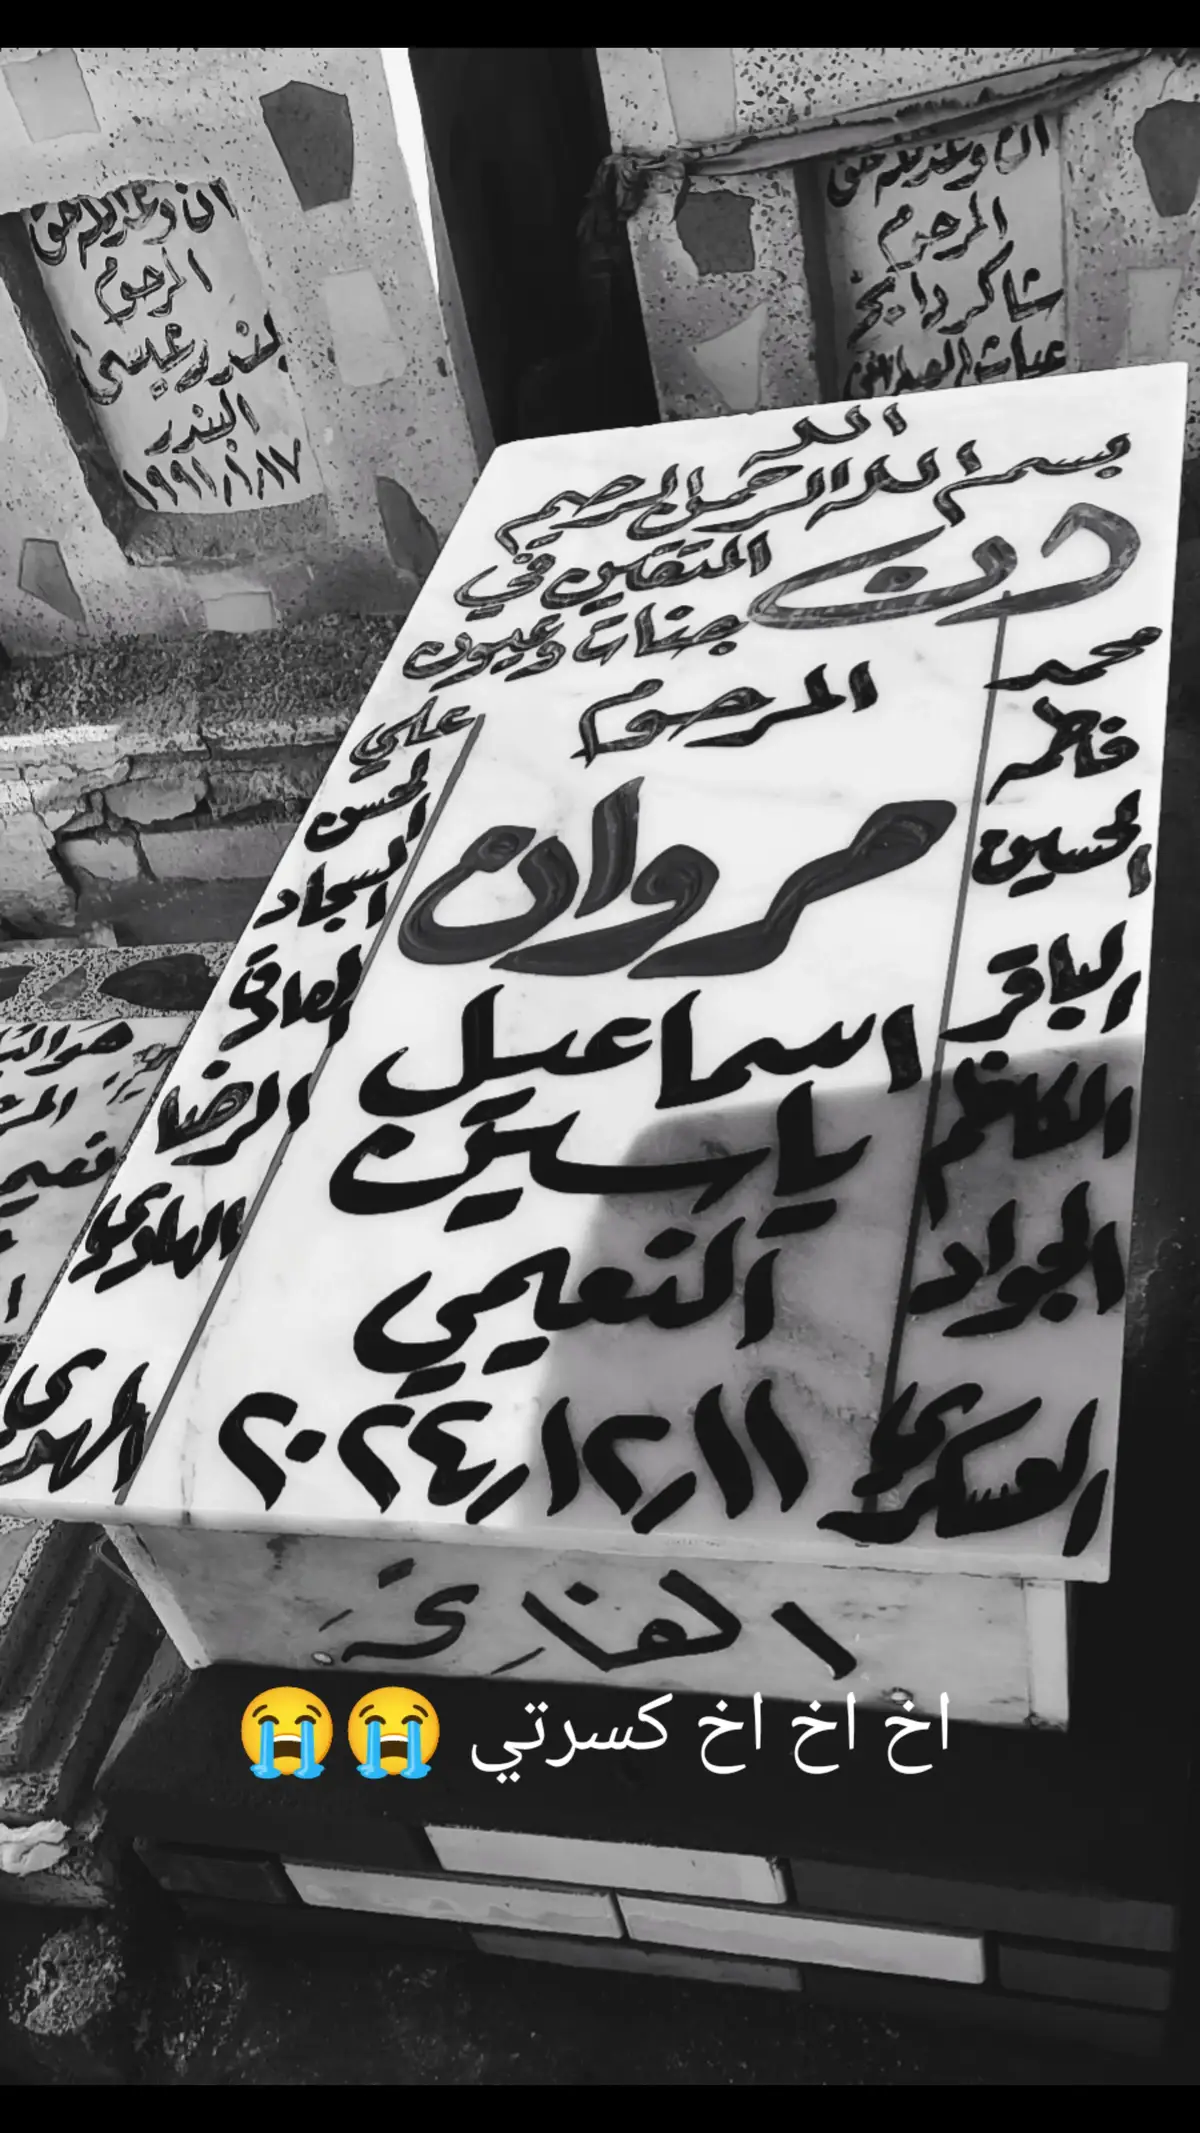 ان وعد الله حق
المرحوم
بندر عيسى
البندر
١٩٩١/١/١٧
ان وعد الله حق
المرحوم
شاكر
الله
بسم الله الرحمن الرحيم
ان
المتقين في
جنات وعيون
المرحوم
مروان
اسماعيل
ياسين
النعيمي
٢٠٢٤/١٢/١١
محمد
فاطمه
الحسين
الباقر
الكاظم
الجواد
العسكري
علي
الحسن
السجاد
الصادق
الرضا
الهادي
المهدي
الفاتحة
اخ اخ اخ كسرتي 😭😭